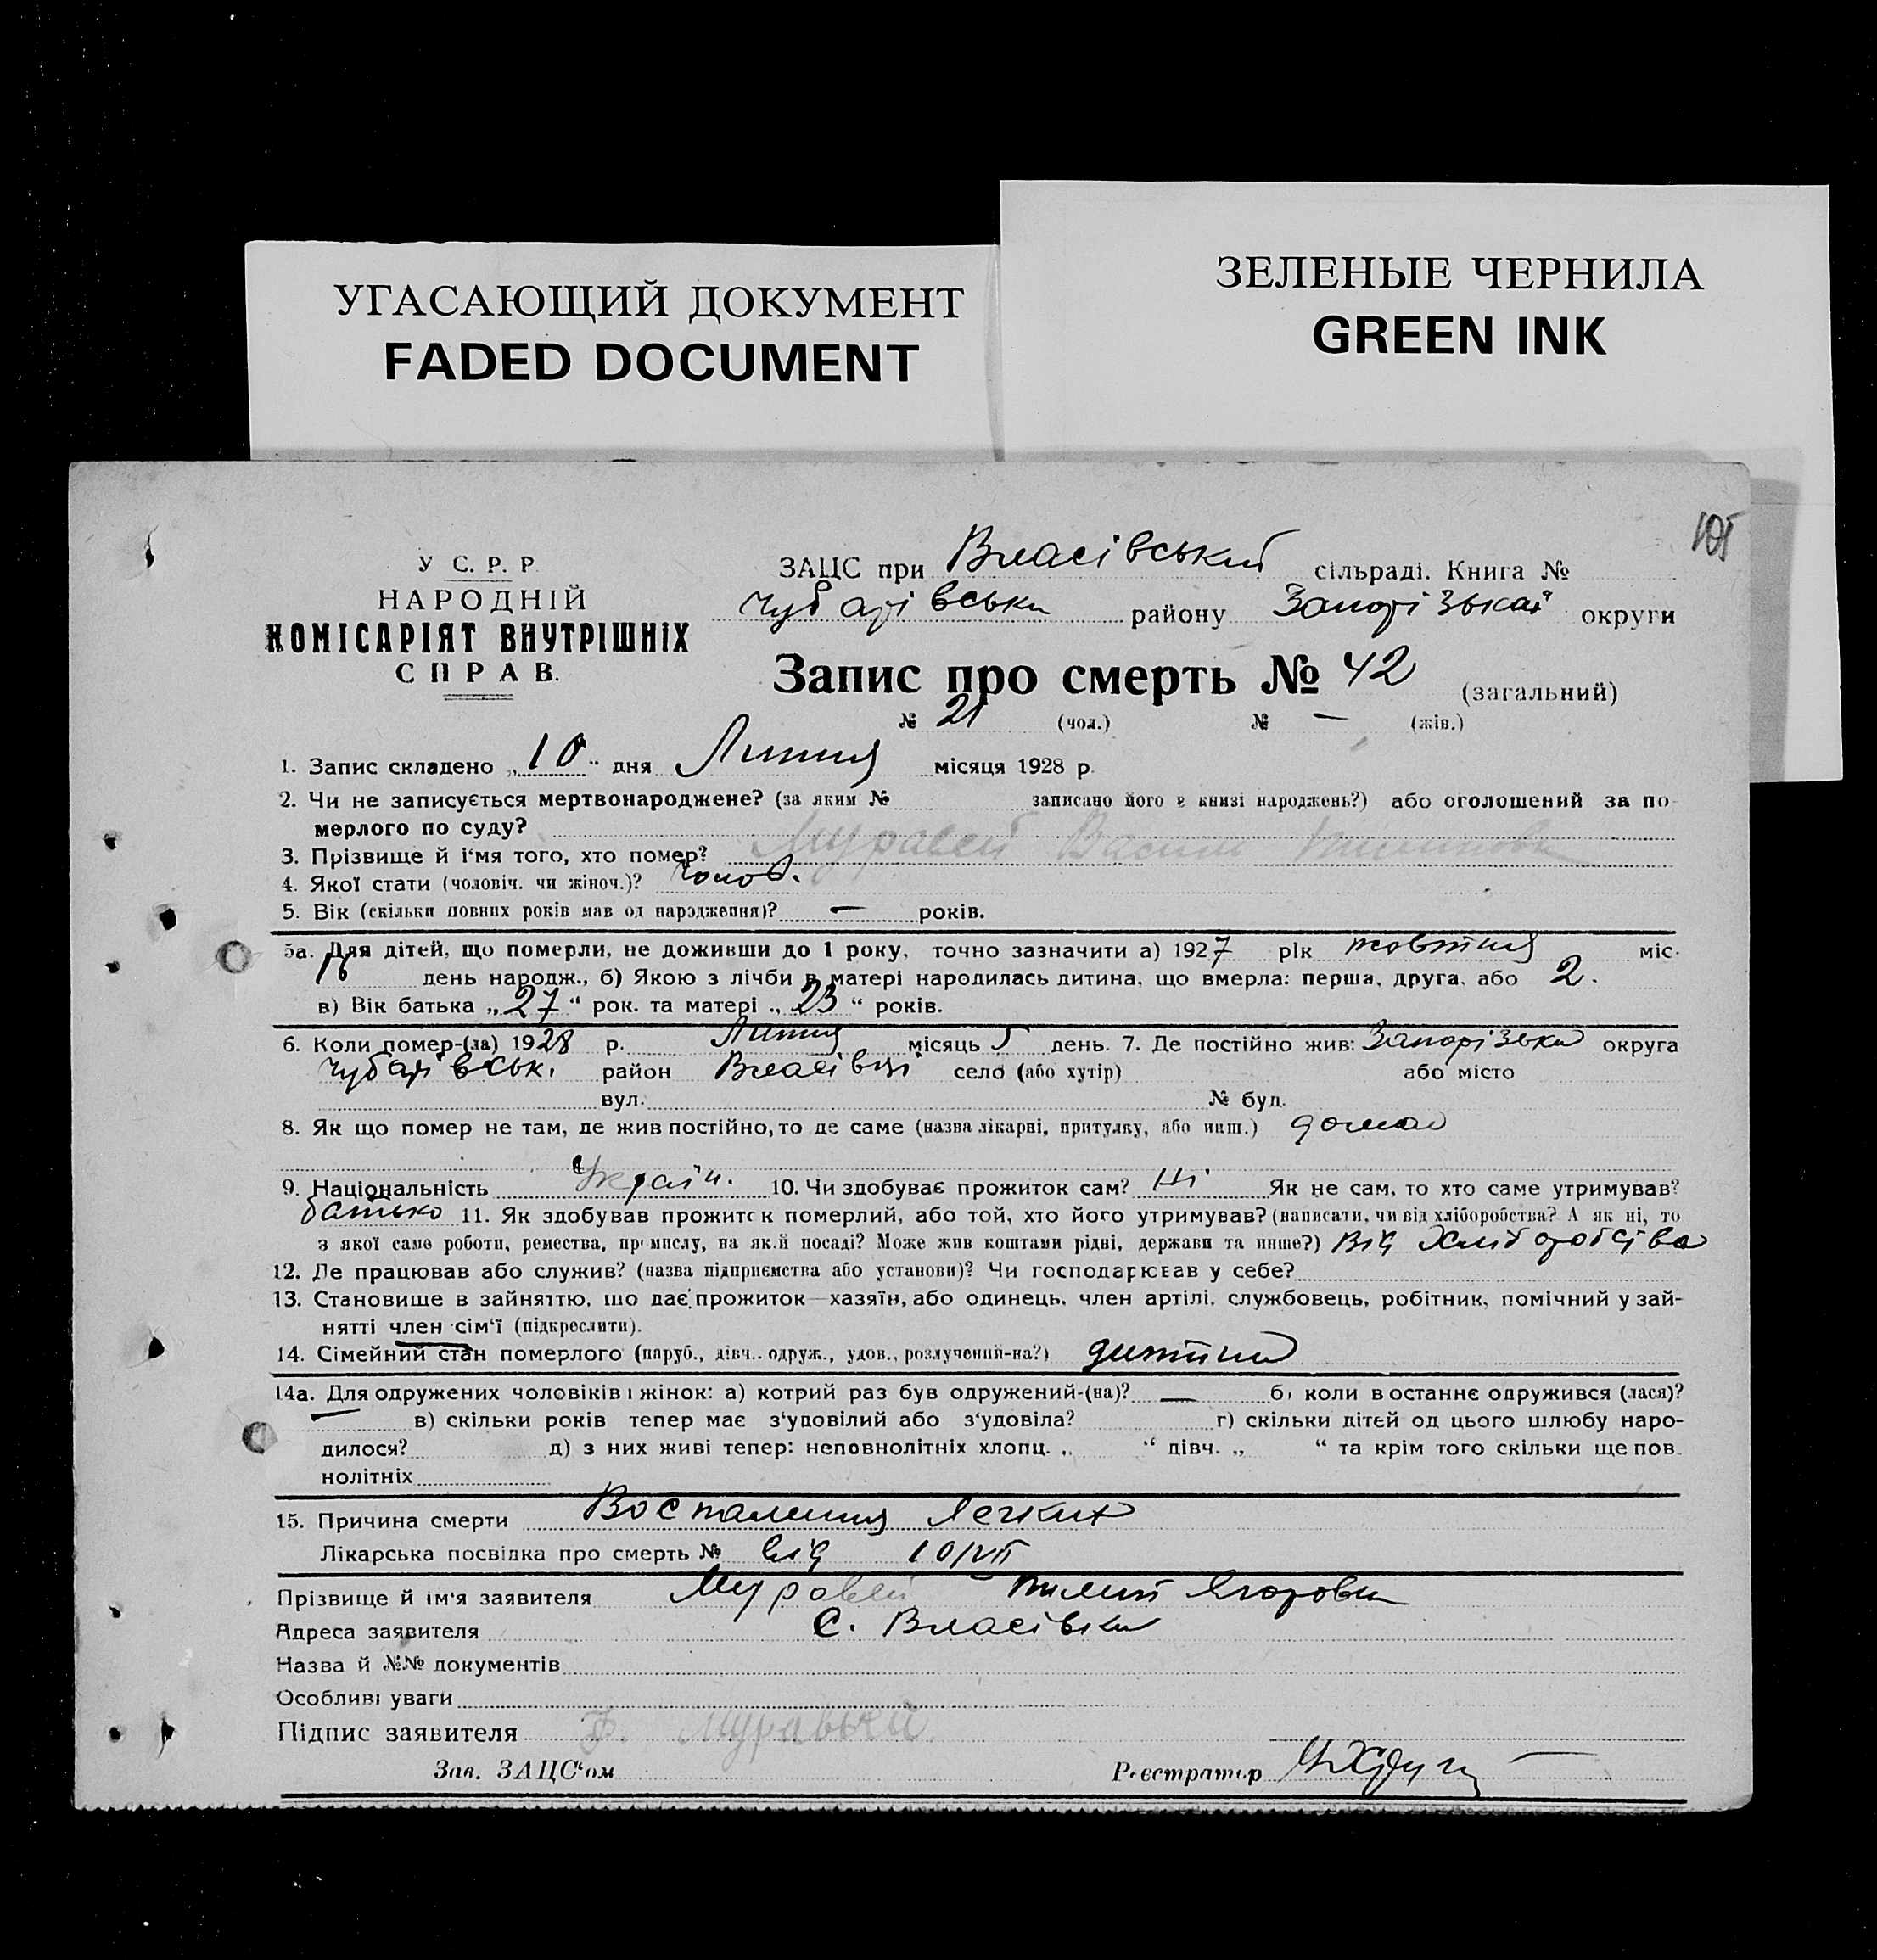 УГАСАЮЩИЙ ДОКУМЕНТ
FADED DOCUMENT
ЗЕЛЕНЫЕ ЧЕРНИЛА
GREEN INK
У С. Р. Р.
НАРОДНІЙ
КОМІСАРІЯТ ВНУТРІШНІХ
СПРАВ.
ЗАЦС при Власівський сільраді. Книга №
Чубарівськи району Запорізькай округи
Запис про смерть № 42 (загальний)
№ 21 (чол.) № — (жін.)
1. Запис складено „10“ дня Липня місяця 1928 р.
2. Чи не записується мертвонароджене? (за яким № записано його в книзі народжень?) або оголошений за по-
мерлого по суду?
3. Прізвище й ім'я того, хто помер? Муравей Васили
4. Якої стати (чоловіч. чи жіноч.)? чолов.
5. Вік (скільки повних років мав од народження)? — років.
5а. Для дітей, що померли, не доживши до 1 року, точно зазначити а) 1927 рік жовтня міс.
16 день народж., б) Якою з лічби в матері народилась дитина, що вмерла: перша, друга, або 2.
в) Вік батька „27“ рок. та матері „23“ років.
6. Коли помер-(ла) 1928 р. Липня місяць 5 день. 7. Де постійно жив: Запорізька округа
Чубарівськ. район Власівці село (або хутір) або місто
вул. № буд.
8. Як що помер не там, де жив постійно, то де саме (назва лікарні, притулку, або инш.) дома
9. Національність Україн. 10. Чи здобуває прожиток сам? Ні Як не сам, то хто саме утримував?
батько 11. Як здобував прожиток померлий, або той, хто його утримував? (написати, чи від хліборобства? А як ні, то
з якої саме роботи, ремества, промислу, на якій посаді? Може жив коштами рідні, держави та инше?) Від Хліборобства
12. Де працював або служив? (назва підприємства або установи)? Чи господарював у себе?
13. Становище в зайняттю, що дає прожиток—хазяїн, або одинець, член артілі, службовець, робітник, помічний у зай-
нятті член сім'ї (підкреслити).
14. Сімейний стан померлого (паруб., дівч., одруж., удов., розлучений-на?) дитина
14а. Для одружених чоловіків і жінок: а) котрий раз був одружений-(на)? — б) коли в останнє одружився (лася)?
— в) скільки років тепер має з'удовілий або з'удовіла? г) скільки дітей од цього шлюбу наро-
дилося? д) з них живі тепер: неповнолітніх хлопц. „ “ дівч. „ “ та крім того скільки ще пов-
нолітніх
15. Причина смерти Воспаления Легких
Лікарська посвідка про смерть № від 10/VII
Прізвище й ім'я заявителя Муравей Пилип Ягорови
Адреса заявителя С. Власівка
Назва й №№ документів
Особливі уваги
Підпис заявителя Муравьей
Зав. ЗАЦС'ом Реєстратор